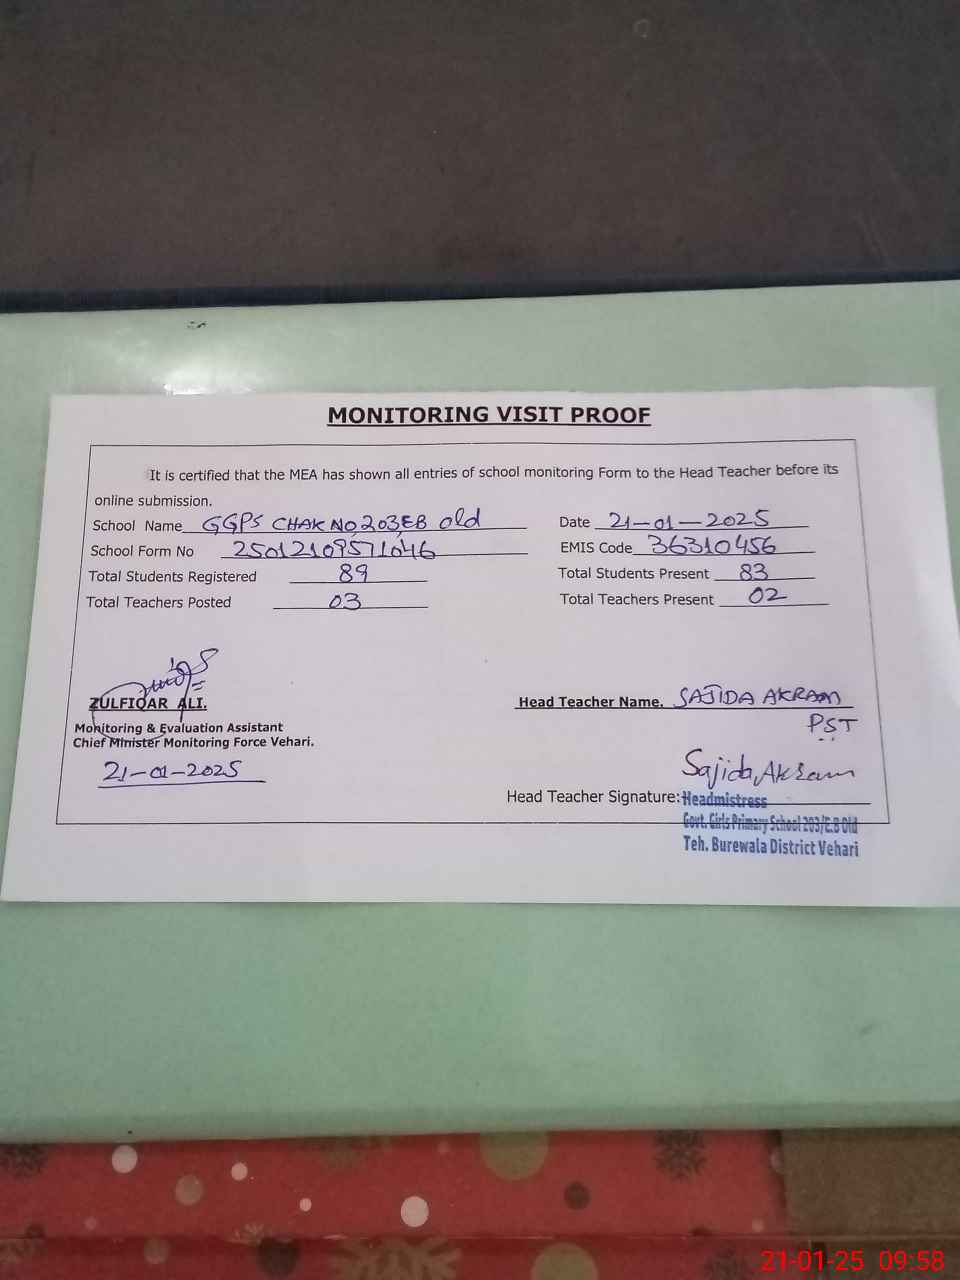 MONITORING VISIT PROOF
It is certified that the MEA has shown all entries of school monitoring Form to the Head Teacher before its
online submission.
School Name GGPS CHAK NO, 203,EB old Date 21-01-2025
School Form No 25012109571046 EMIS Code 36310456
Total Students Registered 89 Total Students Present 83
Total Teachers Posted 03 Total Teachers Present 02
ZULFIQAR ALI. Head Teacher Name. SAJIDA AKRAM
Monitoring & Evaluation Assistant PST
Chief Minister Monitoring Force Vehari.
21-01-2025 Sajida Akram
Head Teacher Signature: Headmistress
Govt. Girls Primary School 203/E.B Old
Teh. Burewala District Vehari
21-01-25 09:58